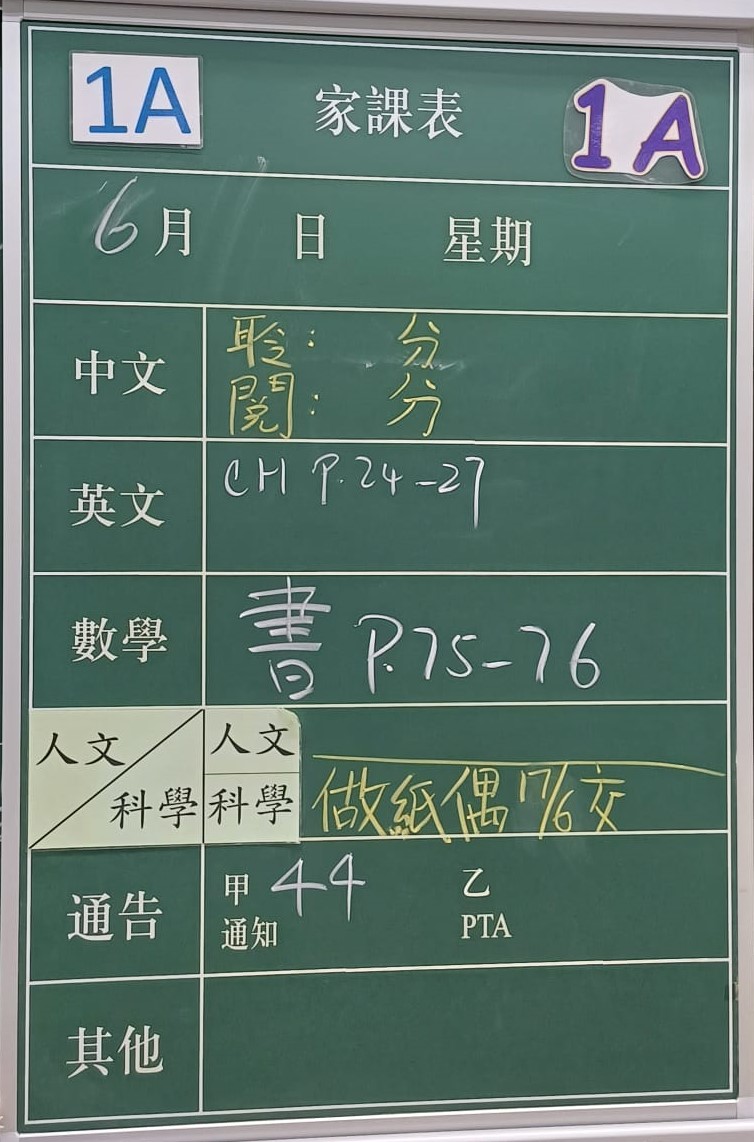 1A 家課表 1A
6月 日 星期
中文
聆： 分
閱： 分
英文
CH P.24-27
數學
書 P.75-76
人文/科學
人文
科學 做紙偶 17/6交
通告
甲 44 乙
通知 PTA
其他